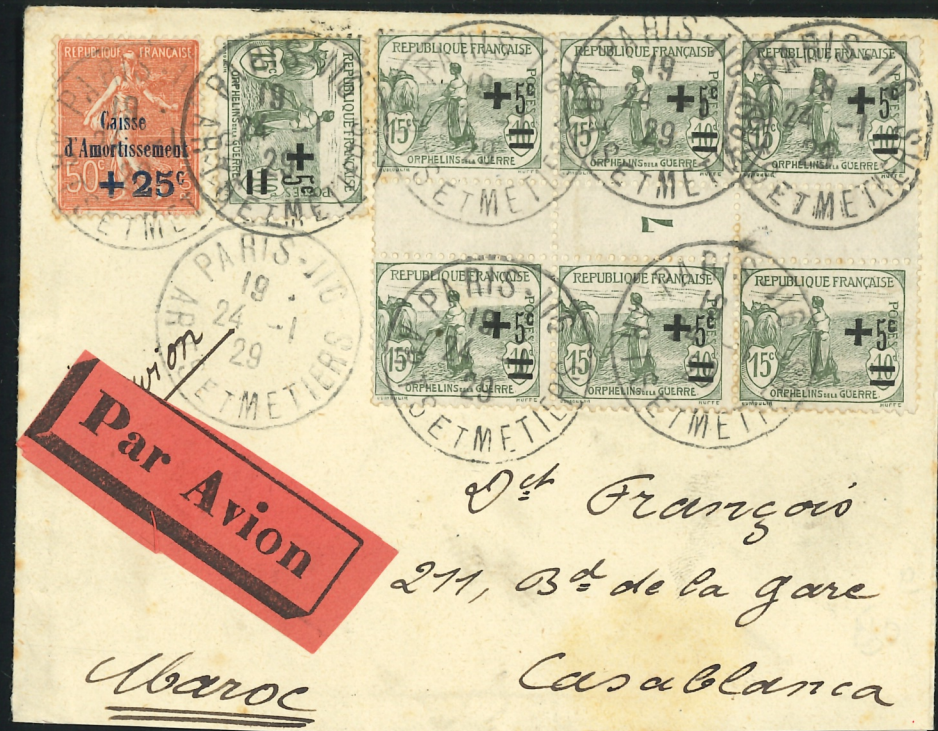 REPUBLIQUE FRANÇAISE
Caisse
d'Amortissement
50c
+25c
REPUBLIQUE FRANÇAISE
POSTES
+5c
ORPHELINS DE LA GUERRE
REPUBLIQUE FRANÇAISE
15c
+5c
POSTES
ORPHELINS DE LA GUERRE
REPUBLIQUE FRANÇAISE
15c
+5c
POSTES
ORPHELINS DE LA GUERRE
REPUBLIQUE FRANÇAISE
15c
+5c
POSTES
ORPHELINS DE LA GUERRE
7
REPUBLIQUE FRANÇAISE
15c
+5c
POSTES
10c
ORPHELINS DE LA GUERRE
RUFFE
REPUBLIQUE FRANÇAISE
15c
+5c
POSTES
10c
ORPHELINS DE LA GUERRE
RUFFE
REPUBLIQUE FRANÇAISE
15c
+5c
POSTES
10c
ORPHELINS DE LA GUERRE
RUFFE
PARIS-IIIC
19
24 -1
29
ARTS ET METIERS
Par Avion
Dct François
211, Bd de la gare
Casablanca
Maroc